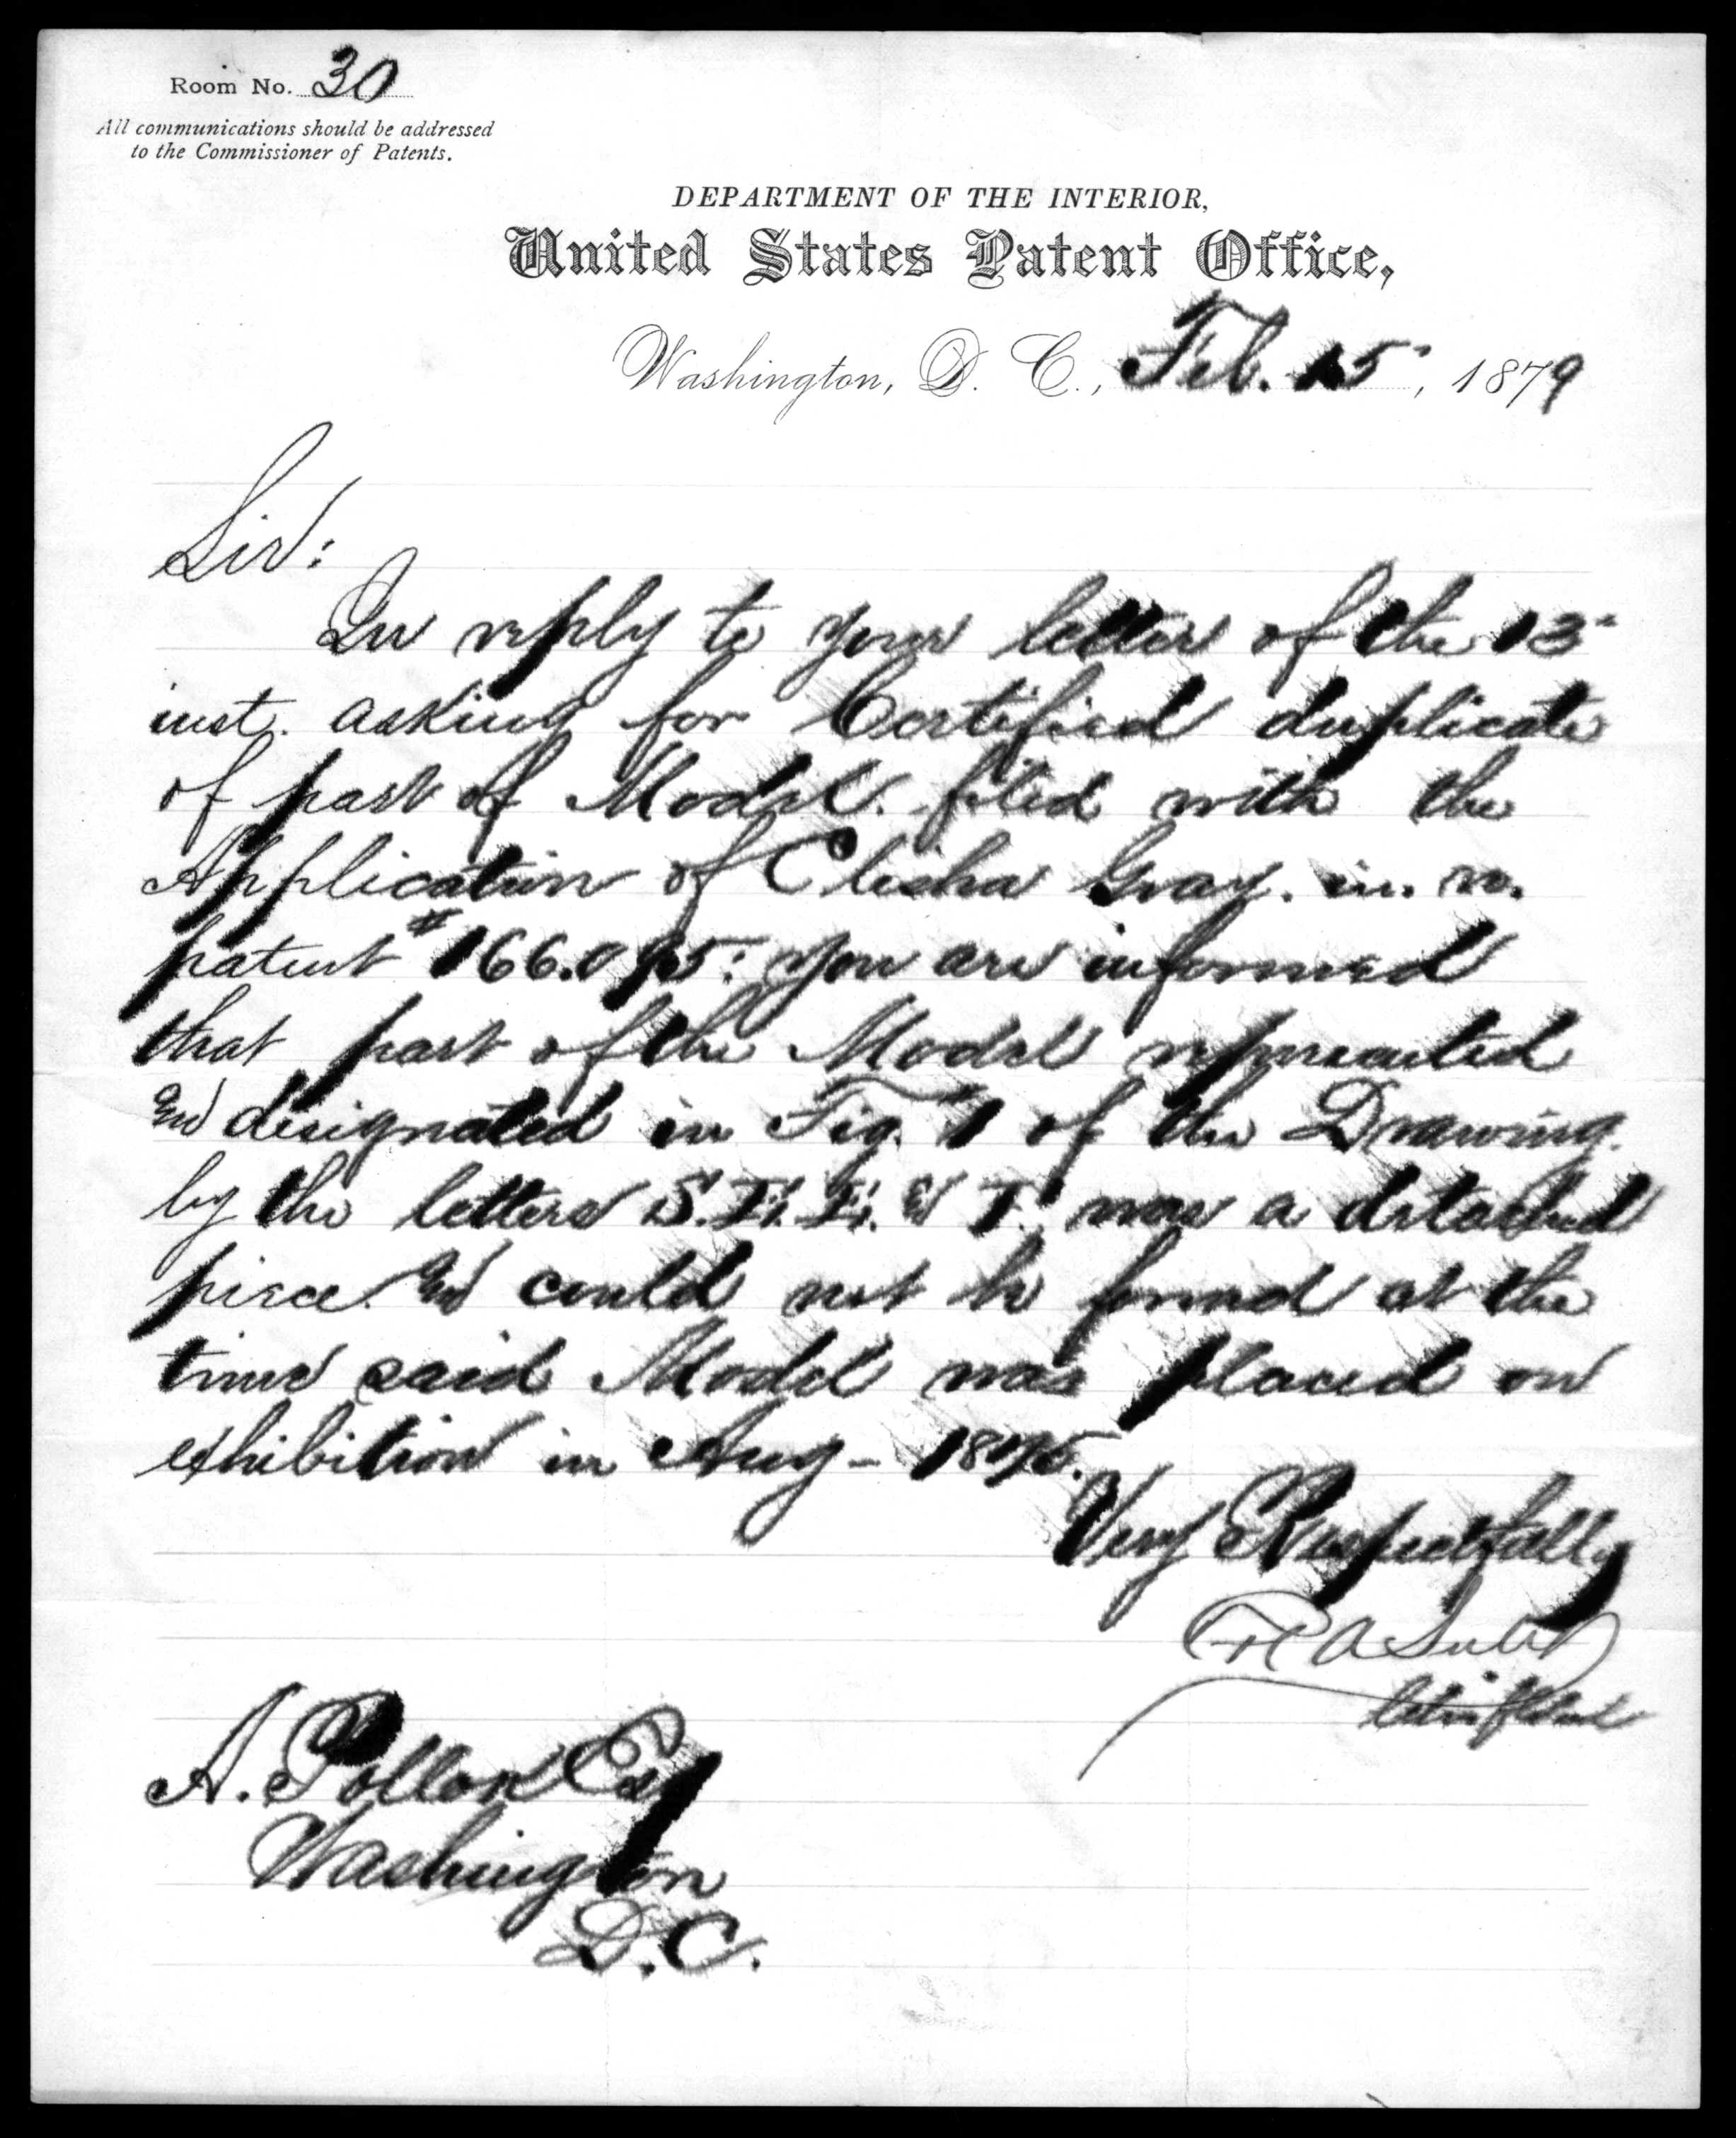 Room No. 30
All communications should be addressed
to the Commissioner of Patents.
DEPARTMENT OF THE INTERIOR,
United States Patent Office,
Washington, D. C., Feb. 15", 1879
Sir:
In reply to your letter of the 13"
inst. asking for Certified duplicate
of part of Model. filed with the
Application of Elisha Gray. in. re.
patent #166.095: you are informed
that part of the Model represented
and designated in Fig. 1 of the Drawing.
by the letters S. & T. was a detached
piece. and could not be found at the
time said Model was placed on
exhibition in Aug - 1875.
Very Respectfully
A
Chief Clerk
A. Pollok Esq
Washington
D.C.